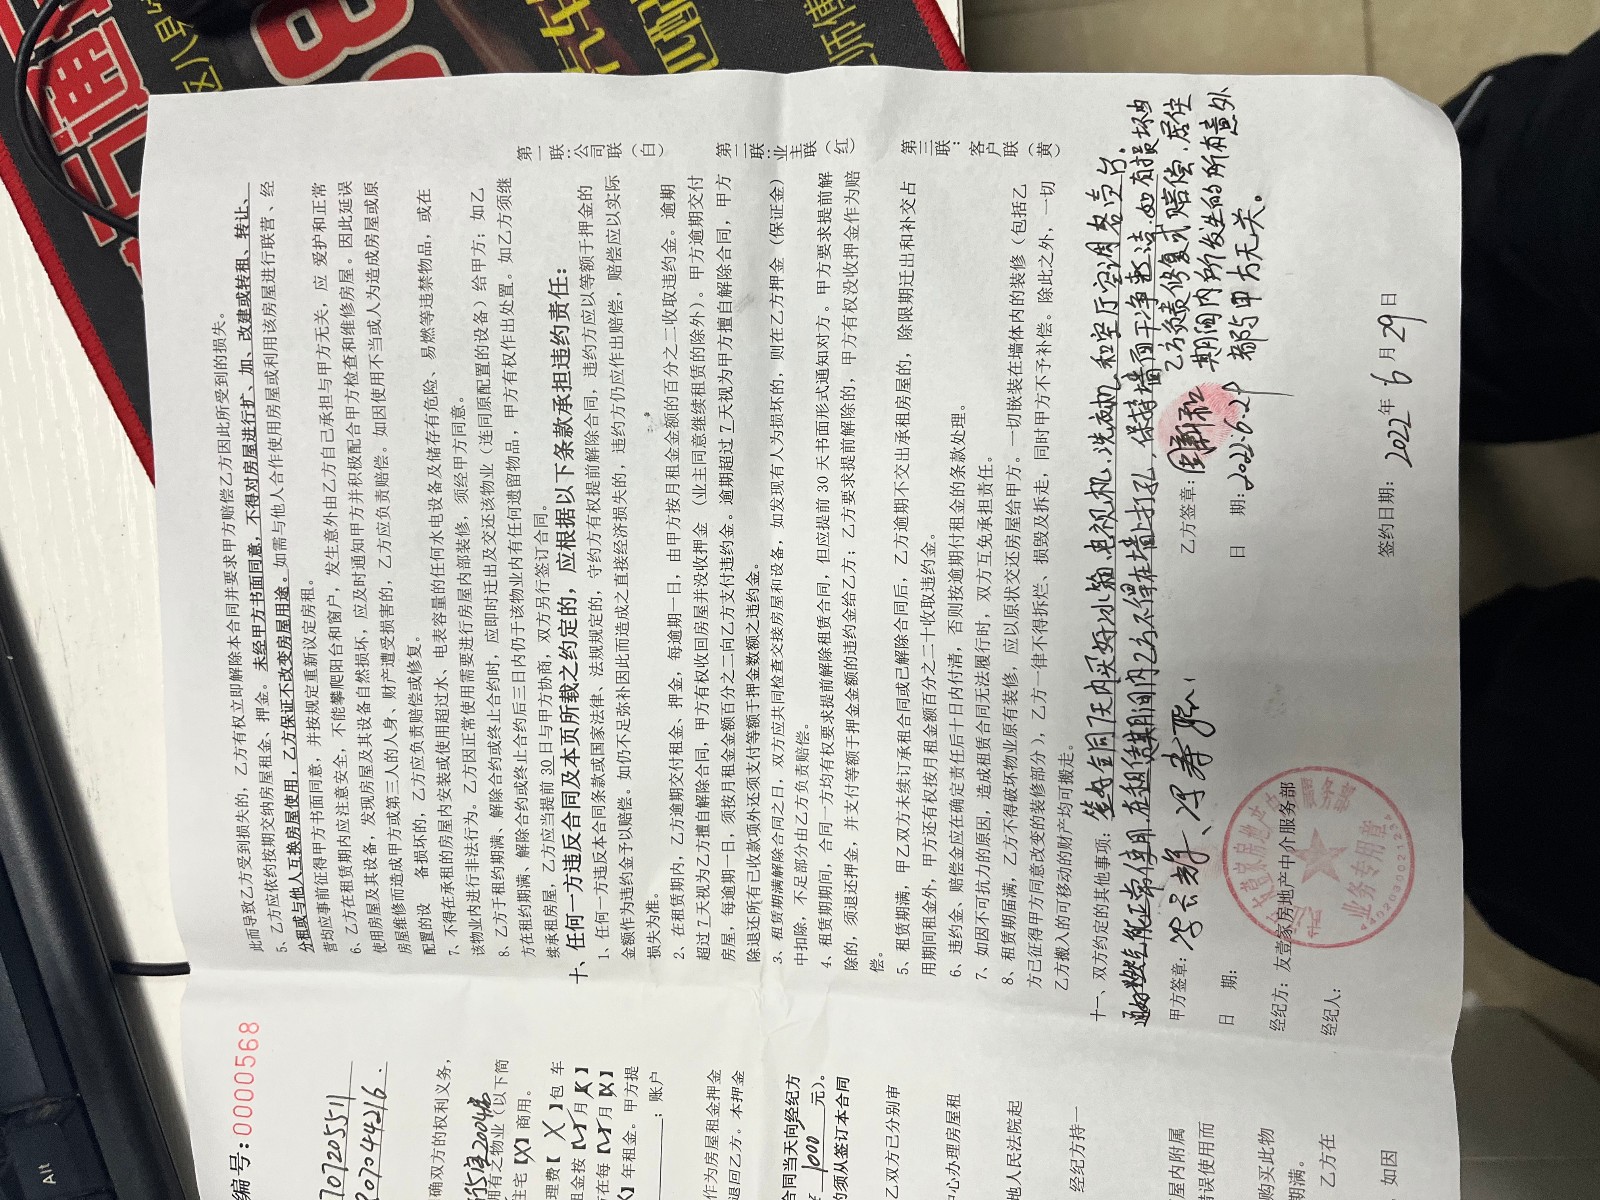 此而导致乙方受到损失的，乙方有权立即解除本合同并要求甲方赔偿乙方因此所受到的损失。
5、乙方应依约按期交纳房屋租金、押金。未经甲方书面同意，不得对房屋进行扩、加、改建或转租、转让、
分租或与他人互换房屋使用，乙方保证不改变房屋用途。如需与他人合作使用房屋或利用该房屋进行联营、经
营均应事前征得甲方书面同意，并按规定重新议定房租。
6、乙方在租赁期内应注意安全，不能攀爬阳台和窗户，发生意外由乙方自己承担与甲方无关，应 爱护和正常
使用房屋及其设备，发现房屋及其设备自然损坏，应及时通知甲方并积极配合甲方检查和维修房屋。因此延误
房屋维修而造成甲方或第三人的人身、财产遭受损害的，乙方应负责赔偿。如因使用不当或人为造成房屋或原
配置的设 备损坏的，乙方应负责赔偿或修复。
7、不得在承租的房屋内安装或使用超过水、电表容量的任何水电设备及储存有危险、易燃等违禁物品，或在
该物业内进行非法行为。乙方因正常使用需要进行房屋内部装修，须经甲方同意。
8、乙方于租约期满、解除合约或终止合约时，应即时迁出及交还该物业（连同原配置的设备）给甲方；如乙
方在租约期满、解除合约或终止合约后三日内仍于该物业内有任何遗留物品，甲方有权作出处置。如乙方须继
续承租房屋，乙方应当提前 30 日与甲方协商，双方另行签订合同。
十、任何一方违反合同及本页所载之约定的，应根据以下条款承担违约责任：
1、任何一方违反本合同条款或国家法律、法规规定的，守约方有权提前解除合同，违约方应以等额于押金的
金额作为违约金予以赔偿。如仍不足弥补因此而造成之直接经济损失的，违约方仍应作出赔偿，赔偿应以实际
损失为准。
2、在租赁期内，乙方逾期交付租金、押金，每逾期一日，由甲方按月租金金额的百分之二收取违约金。逾期
超过 7 天视为乙方擅自解除合同，甲方有权收回房屋并没收押金（业主同意继续租赁的除外）。甲方逾期交付
房屋，每逾期一日，须按月租金金额百分之二向乙方支付违约金。逾期超过 7 天视为甲方擅自解除合同，甲方
除退还所有已收款项外还须支付等额于押金数额之违约金。
3、租赁期满解除合同之日，双方应共同检查交接房屋和设备，如发现有人为损坏的，则在乙方押金（保证金）
中扣除，不足部分由乙方负责赔偿。
4、租赁期期间，合同一方均有权要求提前解除租赁合同，但应提前 30 天书面形式通知对方。甲方要求提前解
除的，须退还押金，并支付等额于押金金额的违约金给乙方；乙方要求提前解除的，甲方有权没收押金作为赔
偿。
5、租赁期满，甲乙双方未续订承租合同或已解除合同后，乙方逾期不交出承租房屋的，除限期迁出和补交占
用期间租金外，甲方还有权按月租金额百分之二十收取违约金。
6、违约金、赔偿金应在确定责任后十日内付清，否则按逾期付租金的条款处理。
7、如因不可抗力的原因，造成租赁合同无法履行时，双方互免承担责任。
8、租赁期届满，乙方不得破坏物业原有装修，应以原状交还房屋给甲方。一切嵌装在墙体内的装修（包括乙
方已征得甲方同意改变的装修部分），乙方一律不得拆烂、损毁及拆走，同时甲方不予补偿。除此之外，一切
乙方搬入的可移动的财产均可搬走。
第一联：公司联（白）
第二联：业主联（红）
第三联：客户联（黄）
十一、双方约定的其他事项：签好合同7天内买好冰箱、电视机、洗衣机和空厅空调各壹台.
通好燃气能正常使用.在租赁期间内乙方不得在墙上打孔，保持墙面干净整洁.如有损坏由
乙方负责修复或赔偿.居住
期间内所发生的所有意外
都与甲方无关。
甲方签章：
乙方签章：
日 期：
日 期：2022.6.29
经纪方：友壹家房地产中介服务部
经纪人：
签约日期： 2022 年 6 月 29 日
业务专用章
编号：0000568
确双方的权利义务，
拥有之物业（以下简
住宅【X】商用。
理费【X】包 车
】年租金。甲方提
；账户
作为房屋租金押金
退回乙方。本押金
合同当天向经纪方
1000 元）。
的须从签订本合同
乙双方已分别审
中心办理房屋租
地人民法院起
经纪方持一
屋内附属
错误使用而
购买此物
期满。
乙方在
，如因
Alt